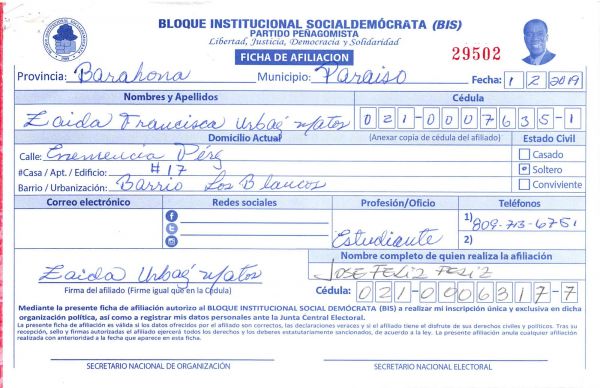 BLOQUE INSTITUCIONAL SOCIALDEMÓCRATA (BIS)
PARTIDO PEÑAGOMISTA
Libertad, Justicia, Democracia y Solidaridad
FICHA DE AFILIACION
29502
Provincia: Barahona Municipio: Paraiso Fecha: 1 2 2019
Nombres y Apellidos Cédula
Zaida Francisca Urbaéz Matos 021-0007635-1
Domicilio Actual (Anexar copia de cédula del afiliado) Estado Civil
Calle: Enemencia Pérez Casado
#Casa / Apt. / Edificio: #17 Soltero
Barrio / Urbanización: Barrio Los Blancos Conviviente
Correo electrónico Redes sociales Profesión/Oficio Teléfonos
1) 809-713-6751
Estudiante 2)
Nombre completo de quien realiza la afiliación
Zaida Urbaéz Matos JOSE FELIZ FELIZ
Firma del afiliado (Firme igual que en la Cédula) Cédula: 021-0006317-7
Mediante la presente ficha de afiliación autorizo al BLOQUE INSTITUCIONAL SOCIAL DEMÓCRATA (BIS) a realizar mi inscripción única y exclusiva en dicha
organización política, así como a registrar mis datos personales ante la Junta Central Electoral.
La presente ficha de afiliación es válida si los datos ofrecidos por el afiliado son correctos, las declaraciones veraces y si el afiliado tiene el disfrute de sus derechos civiles y políticos. Tras su
recepción, sello y firmas autorizadas el afiliado ejercerá todos los derechos y los deberes estatutariamente sancionados, de acuerdo a la ley. La presente afiliación anula cualquier afiliación
realizada con anterioridad a la fecha que aparece en esta ficha.
SECRETARIO NACIONAL DE ORGANIZACIÓN SECRETARIO NACIONAL ELECTORAL